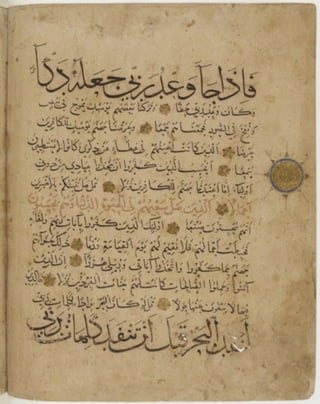 فاذا جا وعد ربي جعله دكا
وكان وعد ربي حقا وتركنا بعضهم يومئذ يموج في بعض
ونفخ في الصور فجمعناهم جمعا وعرضنا جهنم يومئذ للكافرين
عرضا الذين كانت اعينهم في غطاء عن ذكري وكانوا لا يستطيعون
سمعا افحسب الذين كفروا ان يتخذوا عبادي من دوني
اولياء انا اعتدنا جهنم للكافرين نزلا قل هل ننبئكم بالاخسرين
اعمالا الذين ضل سعيهم في الحيوة الدنيا وهم يحسبون
انهم يحسنون صنعا اولئك الذين كفروا بآيات ربهم ولقائه
فحبطت اعمالهم فلا نقيم لهم يوم القيامة وزنا ذلك جزاؤهم
جهنم بما كفروا واتخذوا آياتي ورسلي هزوا ان الذين
آمنوا وعملوا الصالحات كانت لهم جنات الفردوس نزلا خالدين
فيها لا يبغون عنها حولا قل لو كان البحر مدادا لكلمات ربي
لنفد البحر قبل ان تنفد كلمات ربي